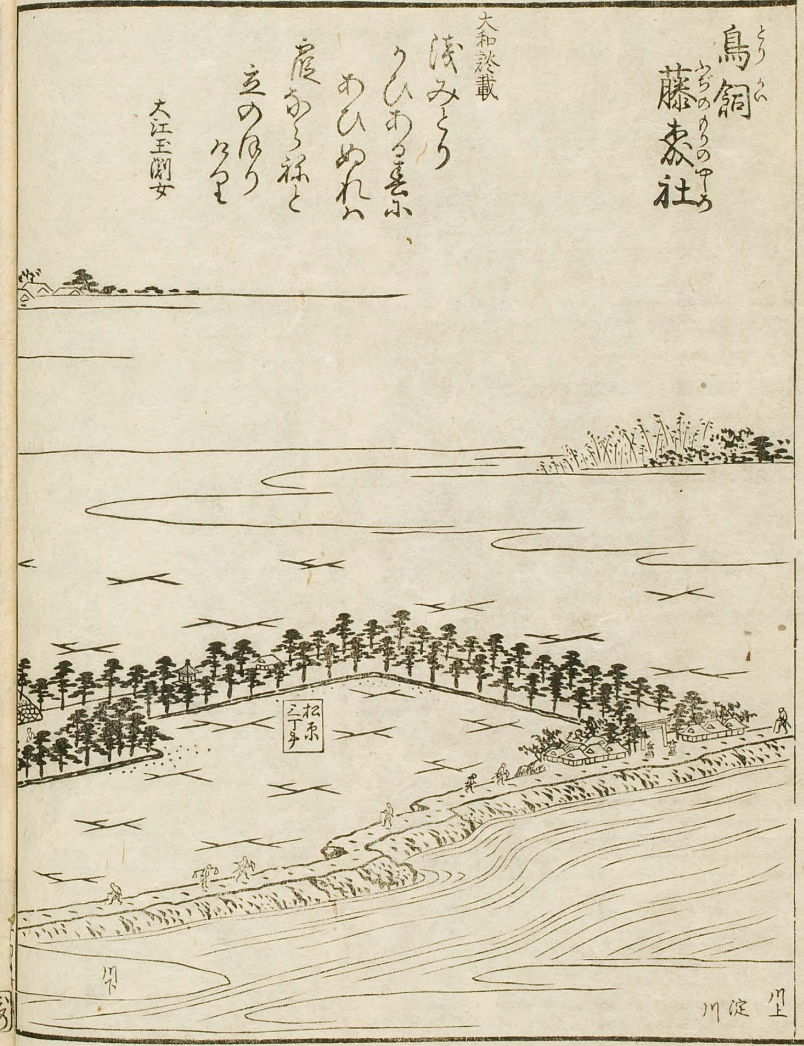 とりかい
鳥飼
ふぢのもりのやしろ
藤森社
大和談載
浅みとり
かひある春に
あひぬれハ
霞ならねと
立のほり
けり
大江玉淵女
松原
三丁半
川上
淀川
川下